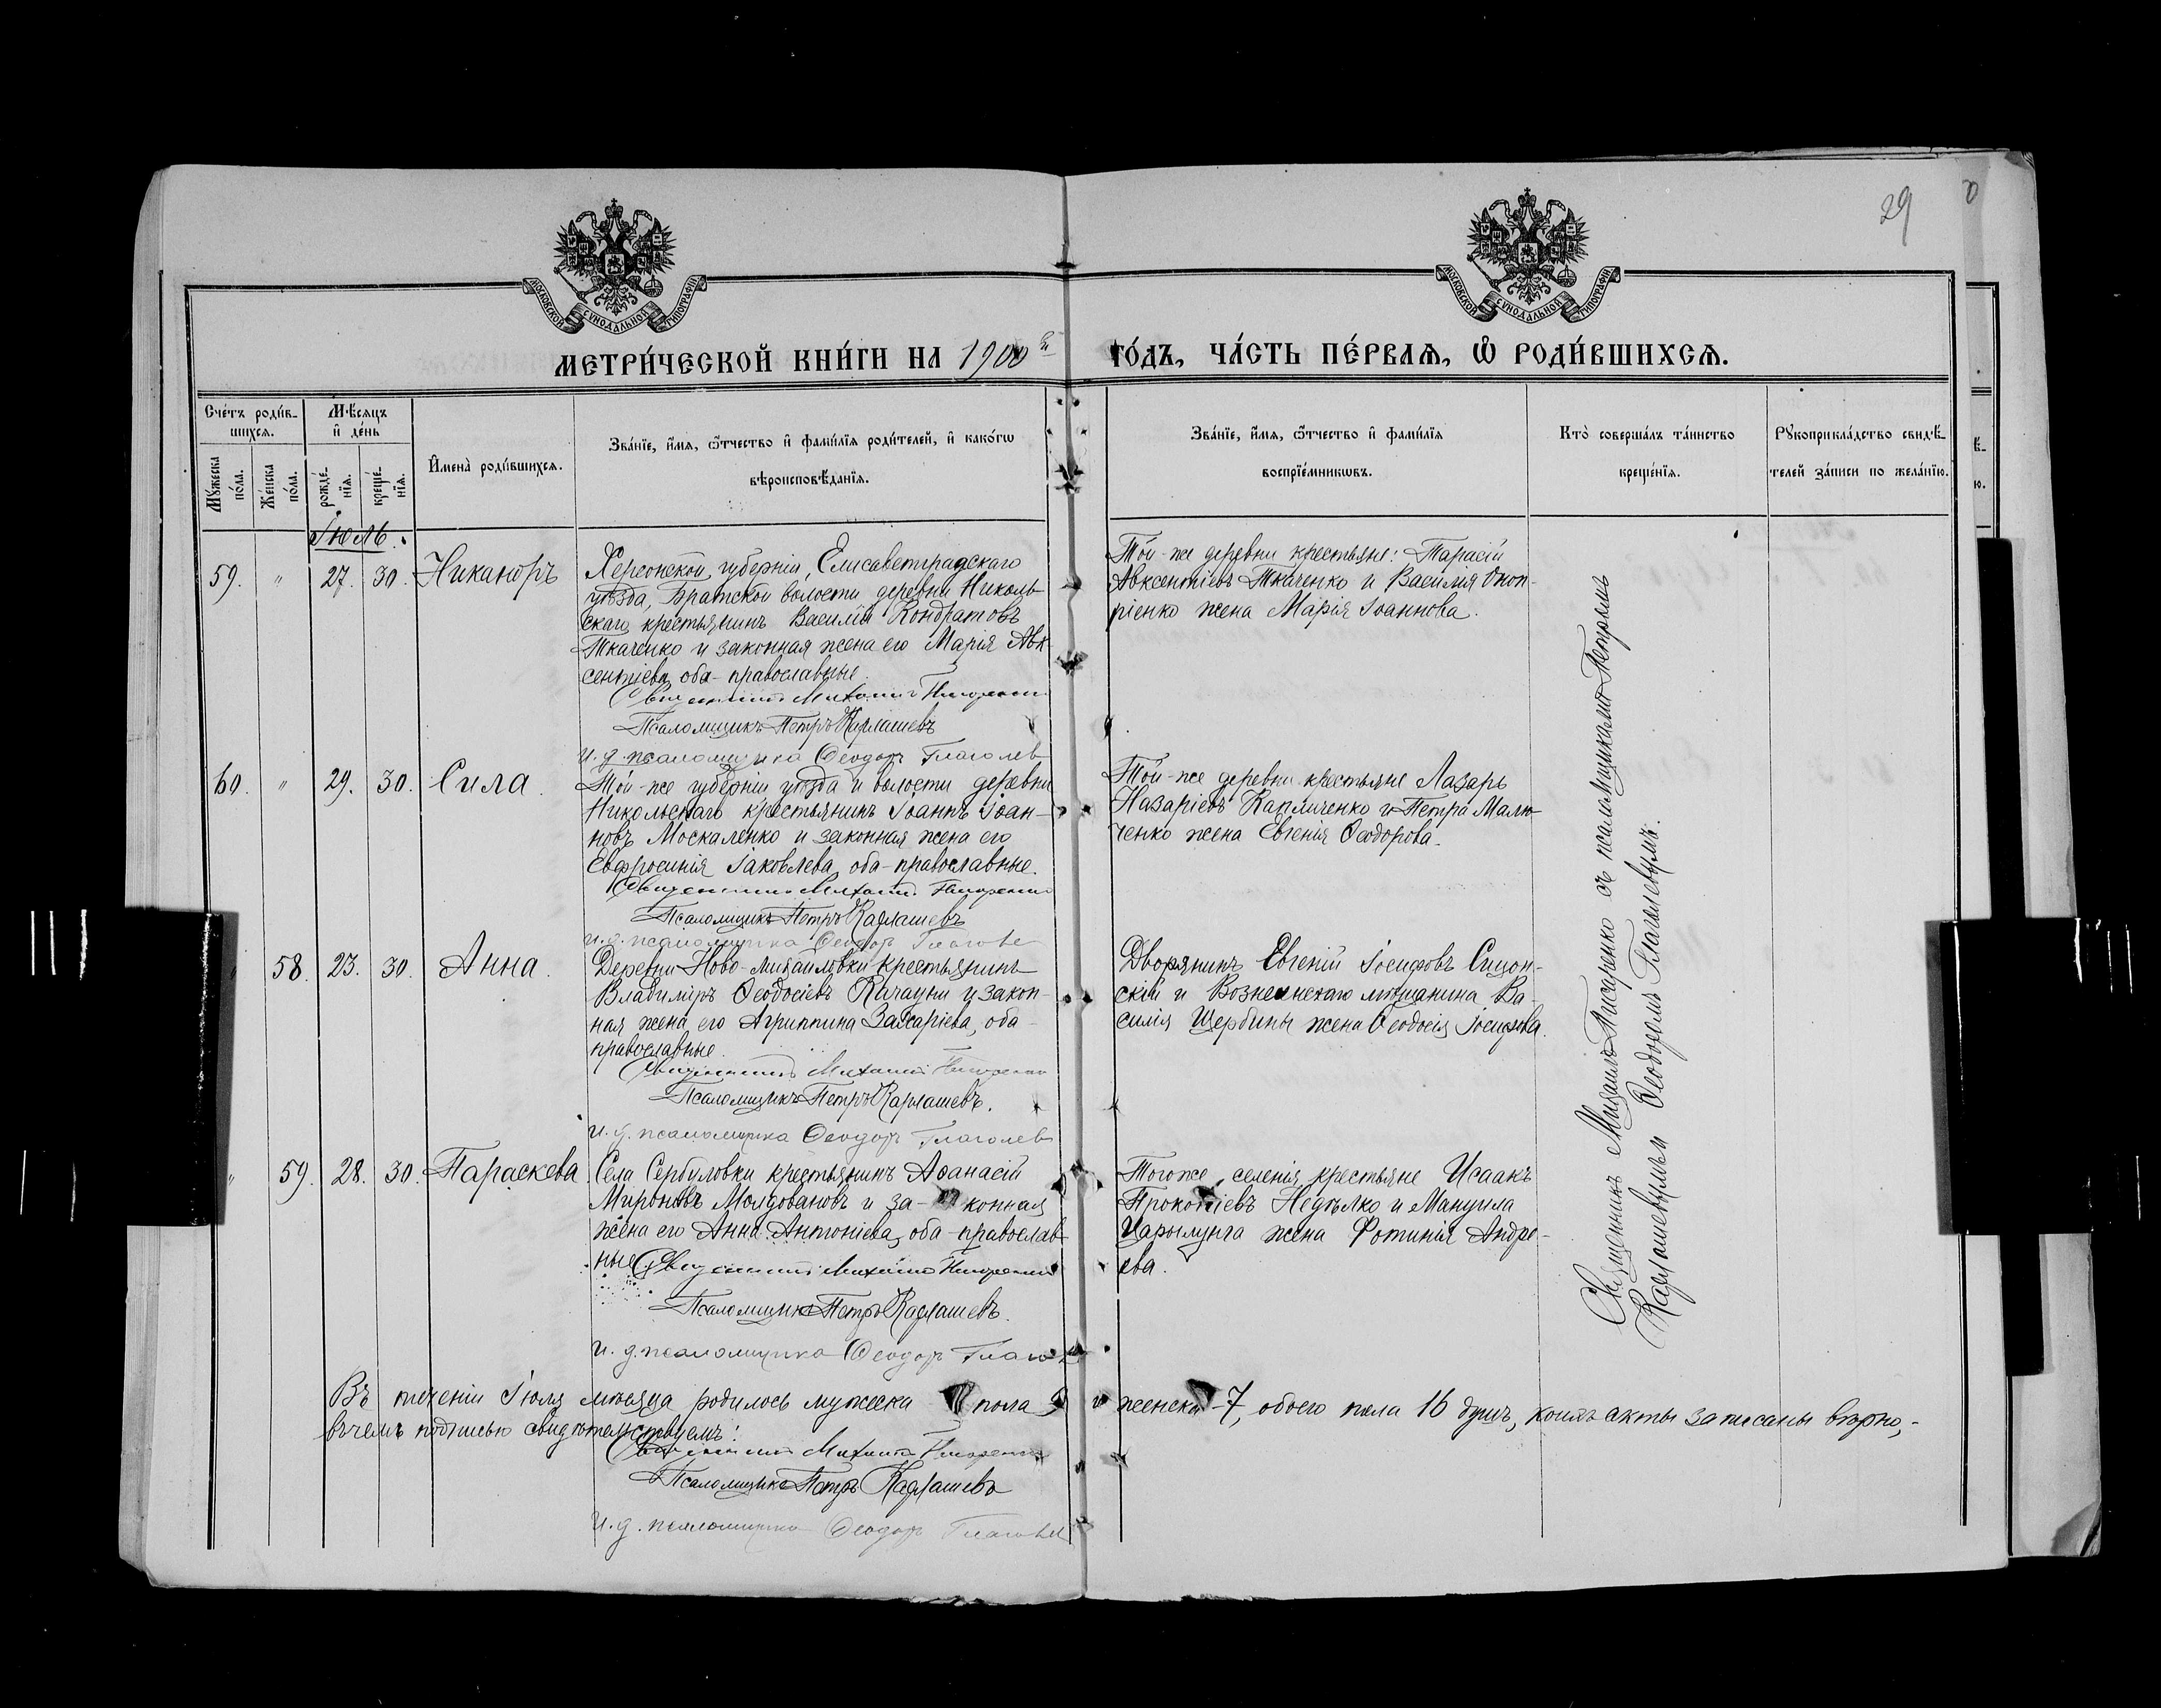 29
МОСКОВСКОЙ СѴНОДАЛЬНОЙ ТИПОГРАФІИ.
МОСКОВСКОЙ СѴНОДАЛЬНОЙ ТИПОГРАФІИ.
МЕТРИ́ЧЕСКОЙ КНИ́ГИ НА 1900й ГО́ДЪ, ЧА́СТЬ ПЕ́РВАѦ, Ѽ РОДИ́ВШИХСѦ.
Сче́тъ роди́в-
шихсѧ.
Мꙋ́жеска по́ла.
Же́нска по́ла.
Мѣ́сѧцъ и҆ де́нь
рожде́-нїѧ.
креще́-нїѧ.
И҆мена̀ роди́вшихсѧ.
Зва́нїе, и҆́мѧ, ѻ҆́тчество и҆ фами́лїѧ роди́телей, и҆ како́гѡ
вѣроисповѣ́данїѧ.
Зва́нїе, и҆́мѧ, ѻ҆́тчество и҆ фами́лїѧ
воспрїе́мникѡвъ.
Кто̀ соверша́лъ та́инство
креще́нїѧ.
Рꙋкоприкла́дство свидѣ́-
телей за́писи по жела́нїю.
Іюль.
59. " 27. 30. Никаноръ
Херсонской губерніи, Елисаветградскаго
уѣзда, Братской волости деревни Николь-
скаго крестьянинъ Василій Кондратовъ
Ткаченко и законная жена его Марія Авк-
сентіева, оба-православные.
Священникъ Михаилъ Писаренко
Псаломщикъ Петръ Карлашевъ
и. д. псаломщика Ѳеодоръ Глаголев
Той-же деревни крестьяне: Тарасій
Авксентіевъ Ткаченко и Василія Оноп-
ріенко жена Марія Іоаннова.
60. " 29. 30. Сила.
Той-же губерніи уѣзда и волости деревни
Никольскаго крестьянинъ Іоаннъ Іоан-
новъ Москаленко и законная жена его
Евфросинія Іаковлева, оба-православные.
Священникъ Михаилъ Писаренко
Псаломщикъ Петръ Карлашевъ
и. д. псаломщика Ѳеодоръ Глаголе
Той-же деревни крестьяне Лазарь
Назаріевъ Капличенко и Петра Малю-
ченко жена Евгенія Ѳеодорова.
58. 23. 30. Анна.
Деревни Ново-Михайловки крестьянинъ
Владиміръ Ѳеодосіевъ Качауны и закон-
ная жена его Агриппина Захаріева, оба-
православные.
Священникъ Михаилъ Писаренко
Псаломщикъ Петръ Карлашевъ.
и. д. псаломщика Ѳеодоръ Глаголев
Дворянинъ Евгеній Іосифовъ Сицин-
скій и Вознесенскаго мѣщанина Ва-
силія Щербины жена Ѳеодосія Іосифова.
" 59. 28. 30. Параскева
Села Сербуловки крестьянинъ Аѳанасій
Мироновъ Молдовановъ и за-конная
жена его Анна Антоніева, оба-православ-
ные. Священникъ Михаилъ Писаренко
Псаломщикъ Петръ Карлашевъ.
и. д. псаломщика Ѳеодоръ Глагол
Того же селенія крестьяне Исаакъ
Прокопіевъ Недѣлко и Мануила
Царылунга жена Фотинія Андре-
ева.
Священникъ Михаилъ Писаренко съ псаломщиками Петромъ
Карлашевымъ и Ѳеодоромъ Глаголевымъ.
Въ теченіи Іюля мѣсяца родилось мужеска пола 9 и женска 7, обоего пола 16 душъ, коихъ акты записаны вѣрно,-
въ чемъ подписью свидѣтельствуемъ:
Священникъ Михаилъ Писаренко
Псаломщикъ Петръ Карлашевъ
И. д. псаломщика Ѳеодоръ Глаголев